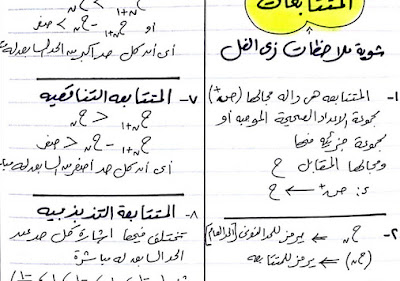 المتتابعات
شوية ملاحظات زى الفل
١- المتتابعه هى داله مجالها (ص+)
مجموعة الاعداد الصحيحة الموجبه أو
مجموعة جزئيه منها
ومجالها المقابل ح
د: ص+ ← ح
٢- ح ن ← يرمز للحد النونى (الحد العام)
(ح ن) ← يرمز للمتتابعه
ح ن+١ > ح ن
او ح ن+١ - ح ن > صفر
أى أن كل حد أكبر من الحد السابق له
٧- المتتابعه التناقصيه
ح ن+١ < ح ن
ح ن+١ - ح ن < صفر
أى أن كل حد أصغر من السابق له
٨- المتتابعة التذبذبيه
تختلف فيها اشارة كل حد عن
الحد السابق له مباشرة